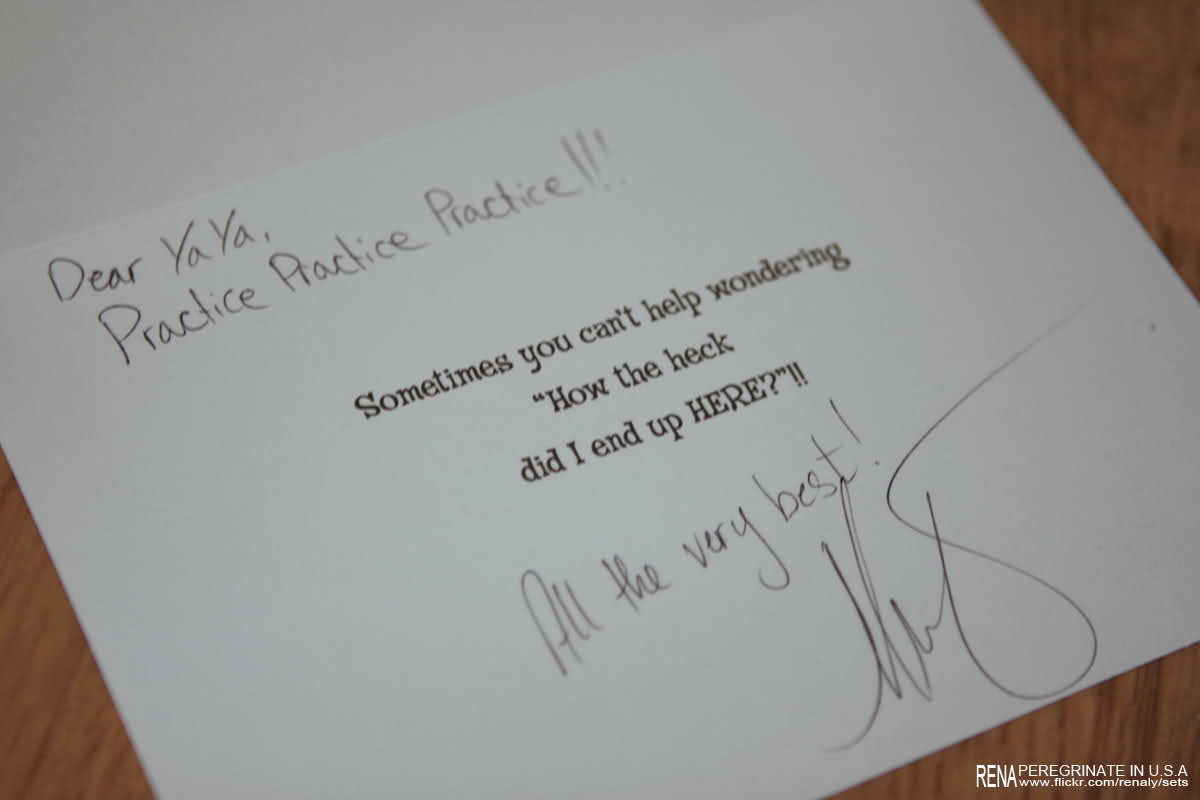 Dear YaYa,
Practice Practice Practice!!!
Sometimes you can't help wondering
“How the heck
did I end up HERE?”!!
All the very best!
RENA PEREGRINATE IN U.S.A
www.flickr.com/renaly/sets